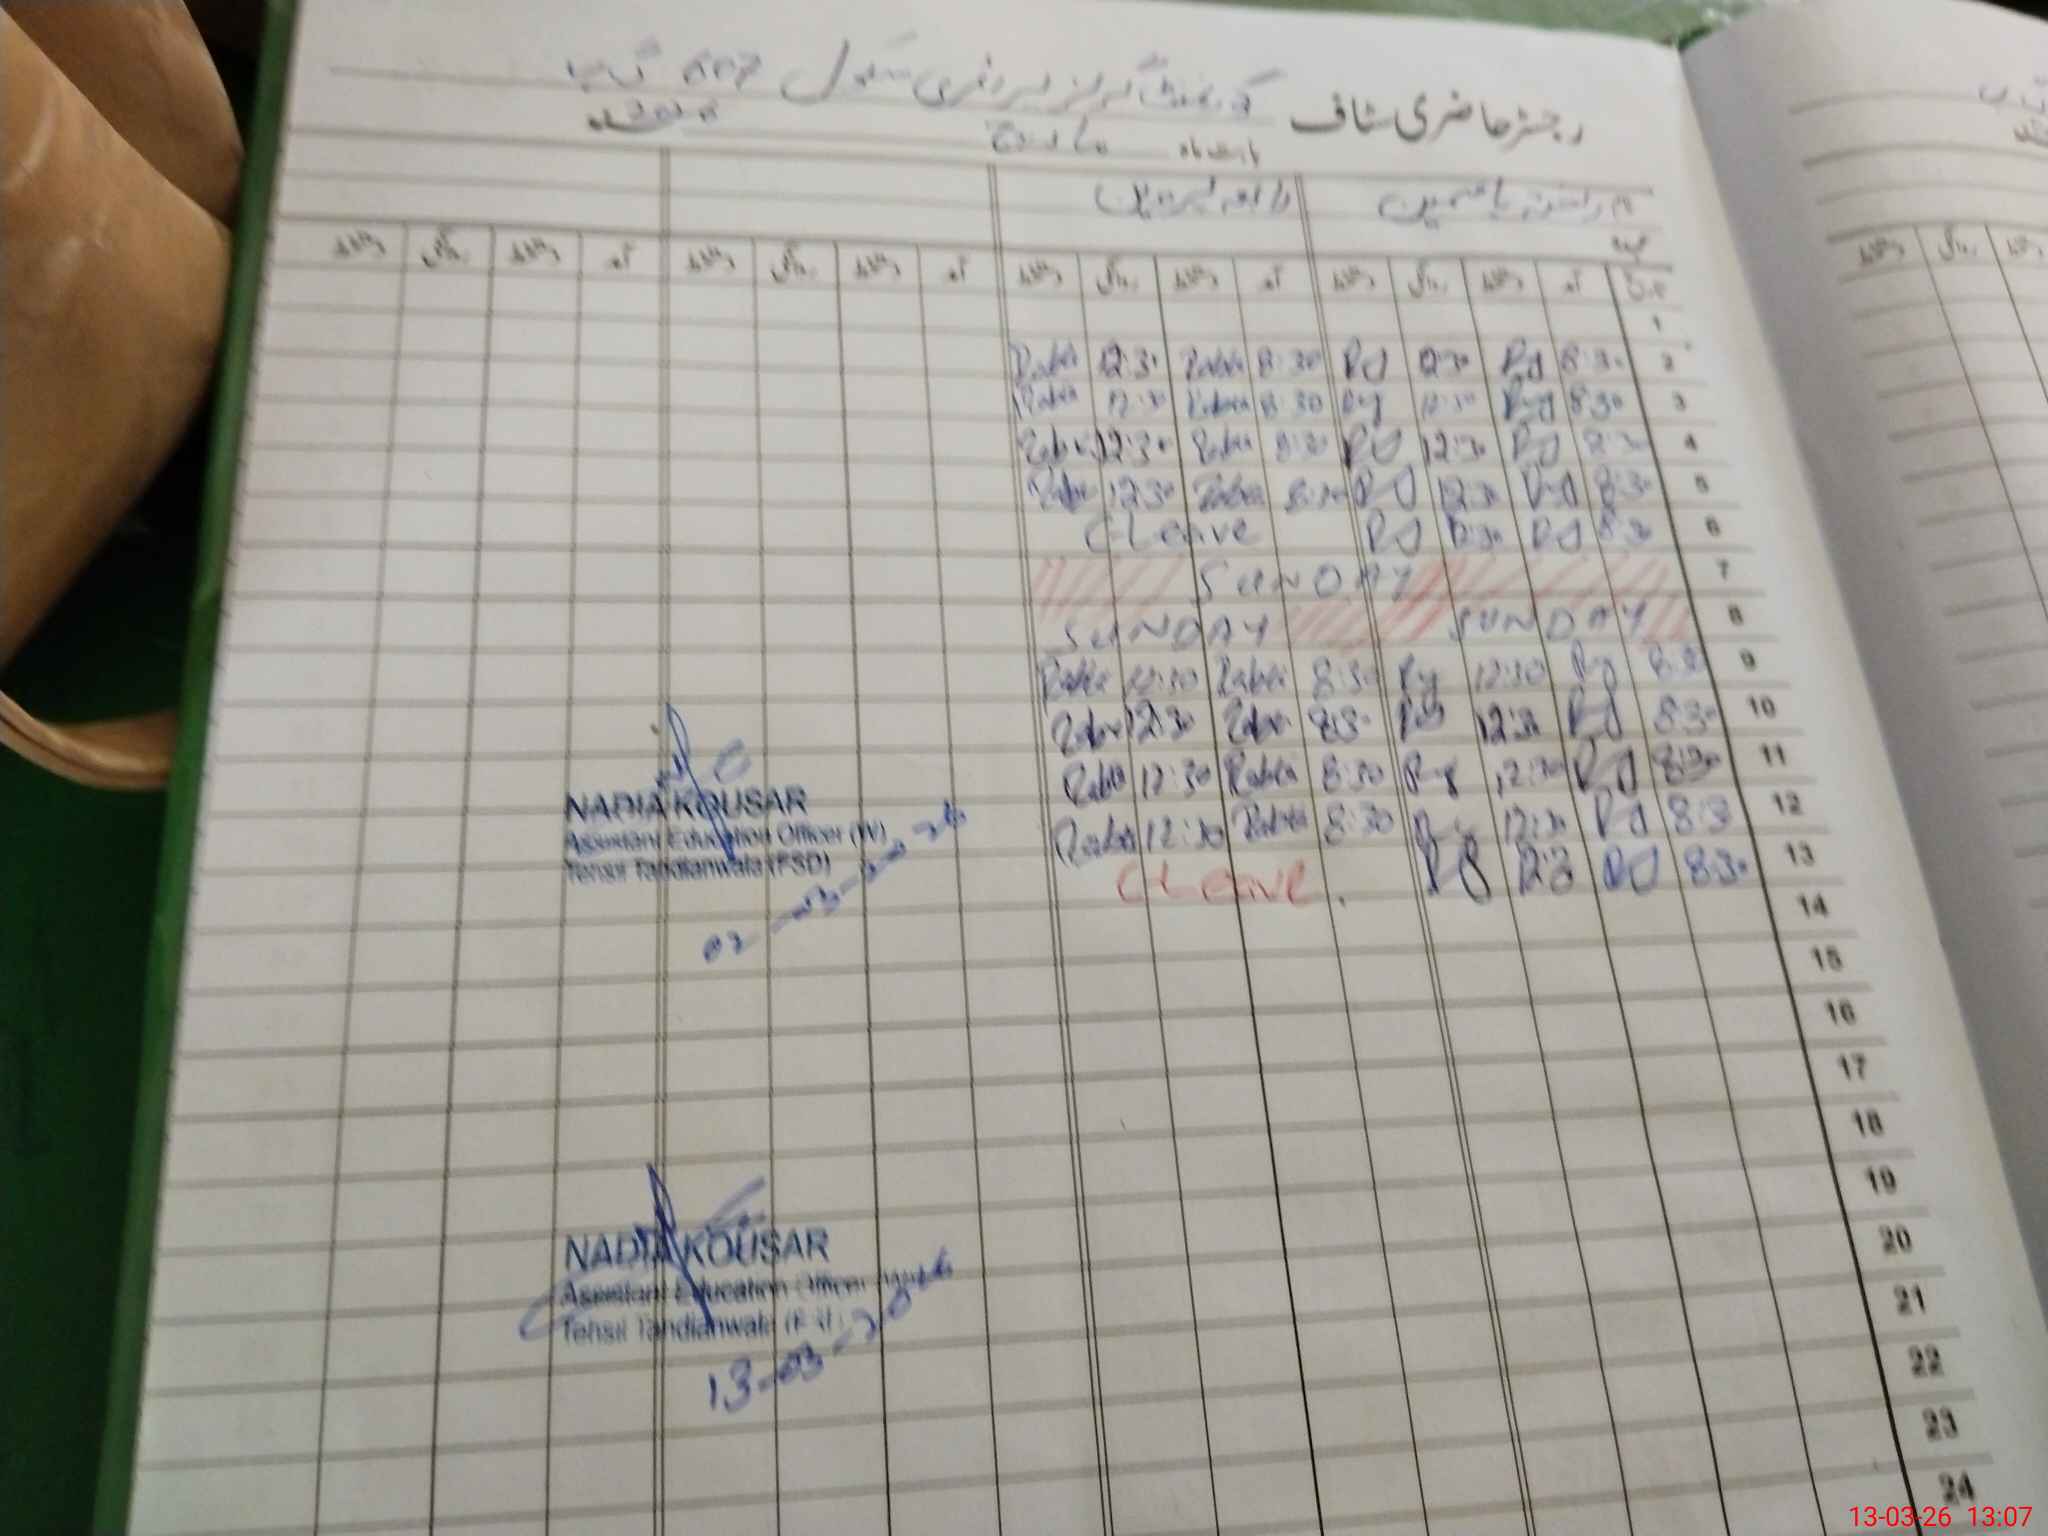 رجسٹر حاضری سٹاف گورنمنٹ گرلز پرائمری سکول 607 گ ب
بابت ماہ مارچ 2026ء
رابعہ یاسمین
دستخط روانگی دستخط آمد دستخط روانگی دستخط آمد دستخط روانگی دستخط آمد دستخط روانگی دستخط آمد تاریخ
1
Rabia 12:30 Rabia 8:30 12:30 8:30 2
Rabia 12:30 Rabia 8:30 12:30 8:30 3
Rabia 12:30 Rabia 8:30 12:30 8:30 4
Rabia 12:30 Rabia 8:30 12:30 8:30 5
C Leave 12:30 8:30 6
SUNDAY 7
SUNDAY SUNDAY 8
Rabia 12:30 Rabia 8:30 12:30 8:30 9
Rabia 12:30 Rabia 8:30 12:30 8:30 10
Rabia 12:30 Rabia 8:30 12:30 8:30 11
Rabia 12:30 Rabia 8:30 12:30 8:30 12
C Leave 12:30 8:30 13
14
15
16
17
18
19
20
21
22
23
24
NADIA KOUSAR
Assistant Education Officer (W)
Tehsil Tandlianwala (FSD)
NADIA KOUSAR
Assistant Education Officer
Tehsil Tandlianwala
13-03-2026
دستخط روانگی
13-03-26 13:07